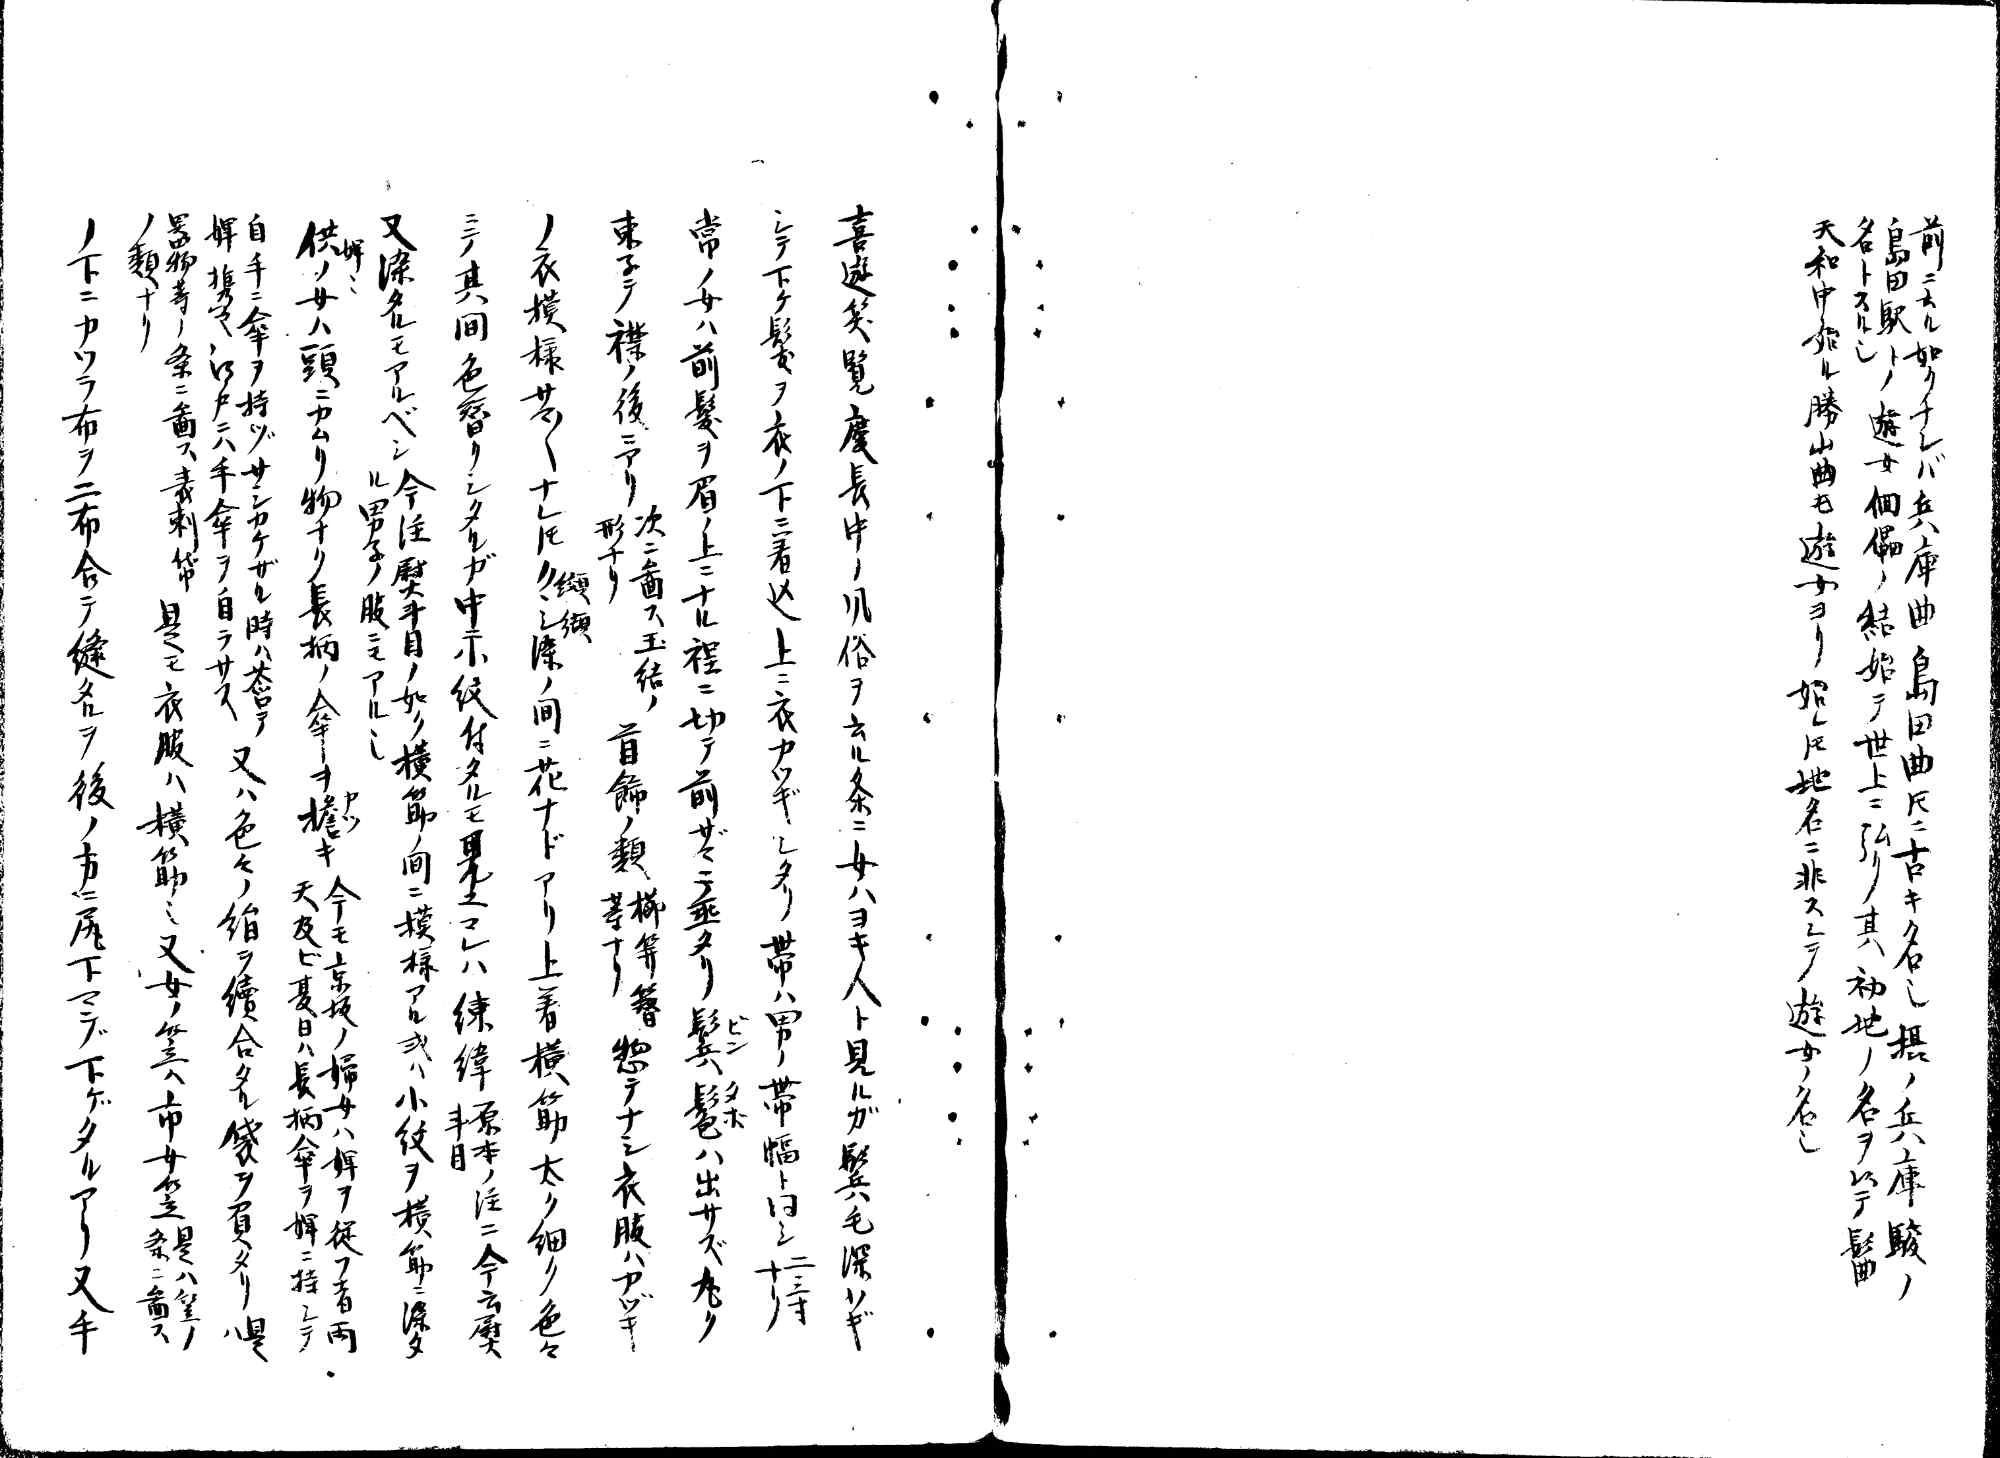 前ニ云ル如クナレバ兵庫曲島田曲トモニ古キ名也摂ノ兵庫駿ノ
島田駅トノ遊女個儡ノ結始テ世上ニ弘リ其初地ノ名ヲ以テ髷曲
名トスル也
天和中始ル勝山曲モ遊女ヨリ始レトモ地名ニ非スシテ遊女ノ名也
喜遊笑覧慶長中ノ風俗ヲ云ル条ニ女ハヨキ人ト見ルガ鬢毛深ソギ
シテ下ケ髪ヲ衣ノ下ニ着込上ニ衣カツギシタリ帯ハ男ノ帯幅ト同シ二三寸ナリ
常ノ女ハ前髪ヲ眉ノ上ニナル程ニ切テ前ザマニ垂タリ鬢ビン髱タボハ出サズ丸ク
束子テ襟ノ後ニアリ次ニ図ス玉結ノ形ナリ首飾ノ類櫛笄簪等ナリ惣テナシ衣服ハカヅキ
ノ衣模様サマ〱ナレトモクヽシ染纐纈ノ間ニ花ナドアリ上着横筋太ク細ク色々
ニテ其間色替リシタルガ中ニ小紋付タルモ見エマレハ練緯原本ノ注ニ今云熨斗目
又染タルモアルベシ今注熨斗目ノ如ク横筋ノ間ニ模様アル或ハ小紋ヲ横筋ニ染タル男子ノ服ニモアル也
供ノ女婢也ハ頭ニカムリ物ナク長柄ノ傘ヲ擔カツキ今モ京坂ノ婦女ハ婢ヲ従フ者雨天及ビ夏日ハ長柄傘ヲ婢ニ持シテ
自手ニ傘ヲ持ヅサシカケザル時ハ蒼ヲ
婢携之江戸ニハ手傘ヲ自ラサス又ハ色々ノ絹ヲ續合タル袋ヲ負タリ是ハ
畧物等ノ条ニ図ス表刺袋ノ類ナリ是モ衣服ハ横筋也又女ノ笠ハ市女笠是ハ笠ノ条ニ図ス
ノ下ニカツラ布ヲ二布合テ縫タルヲ後ノ方ニ尻下マデ下ゲタルアリ又手